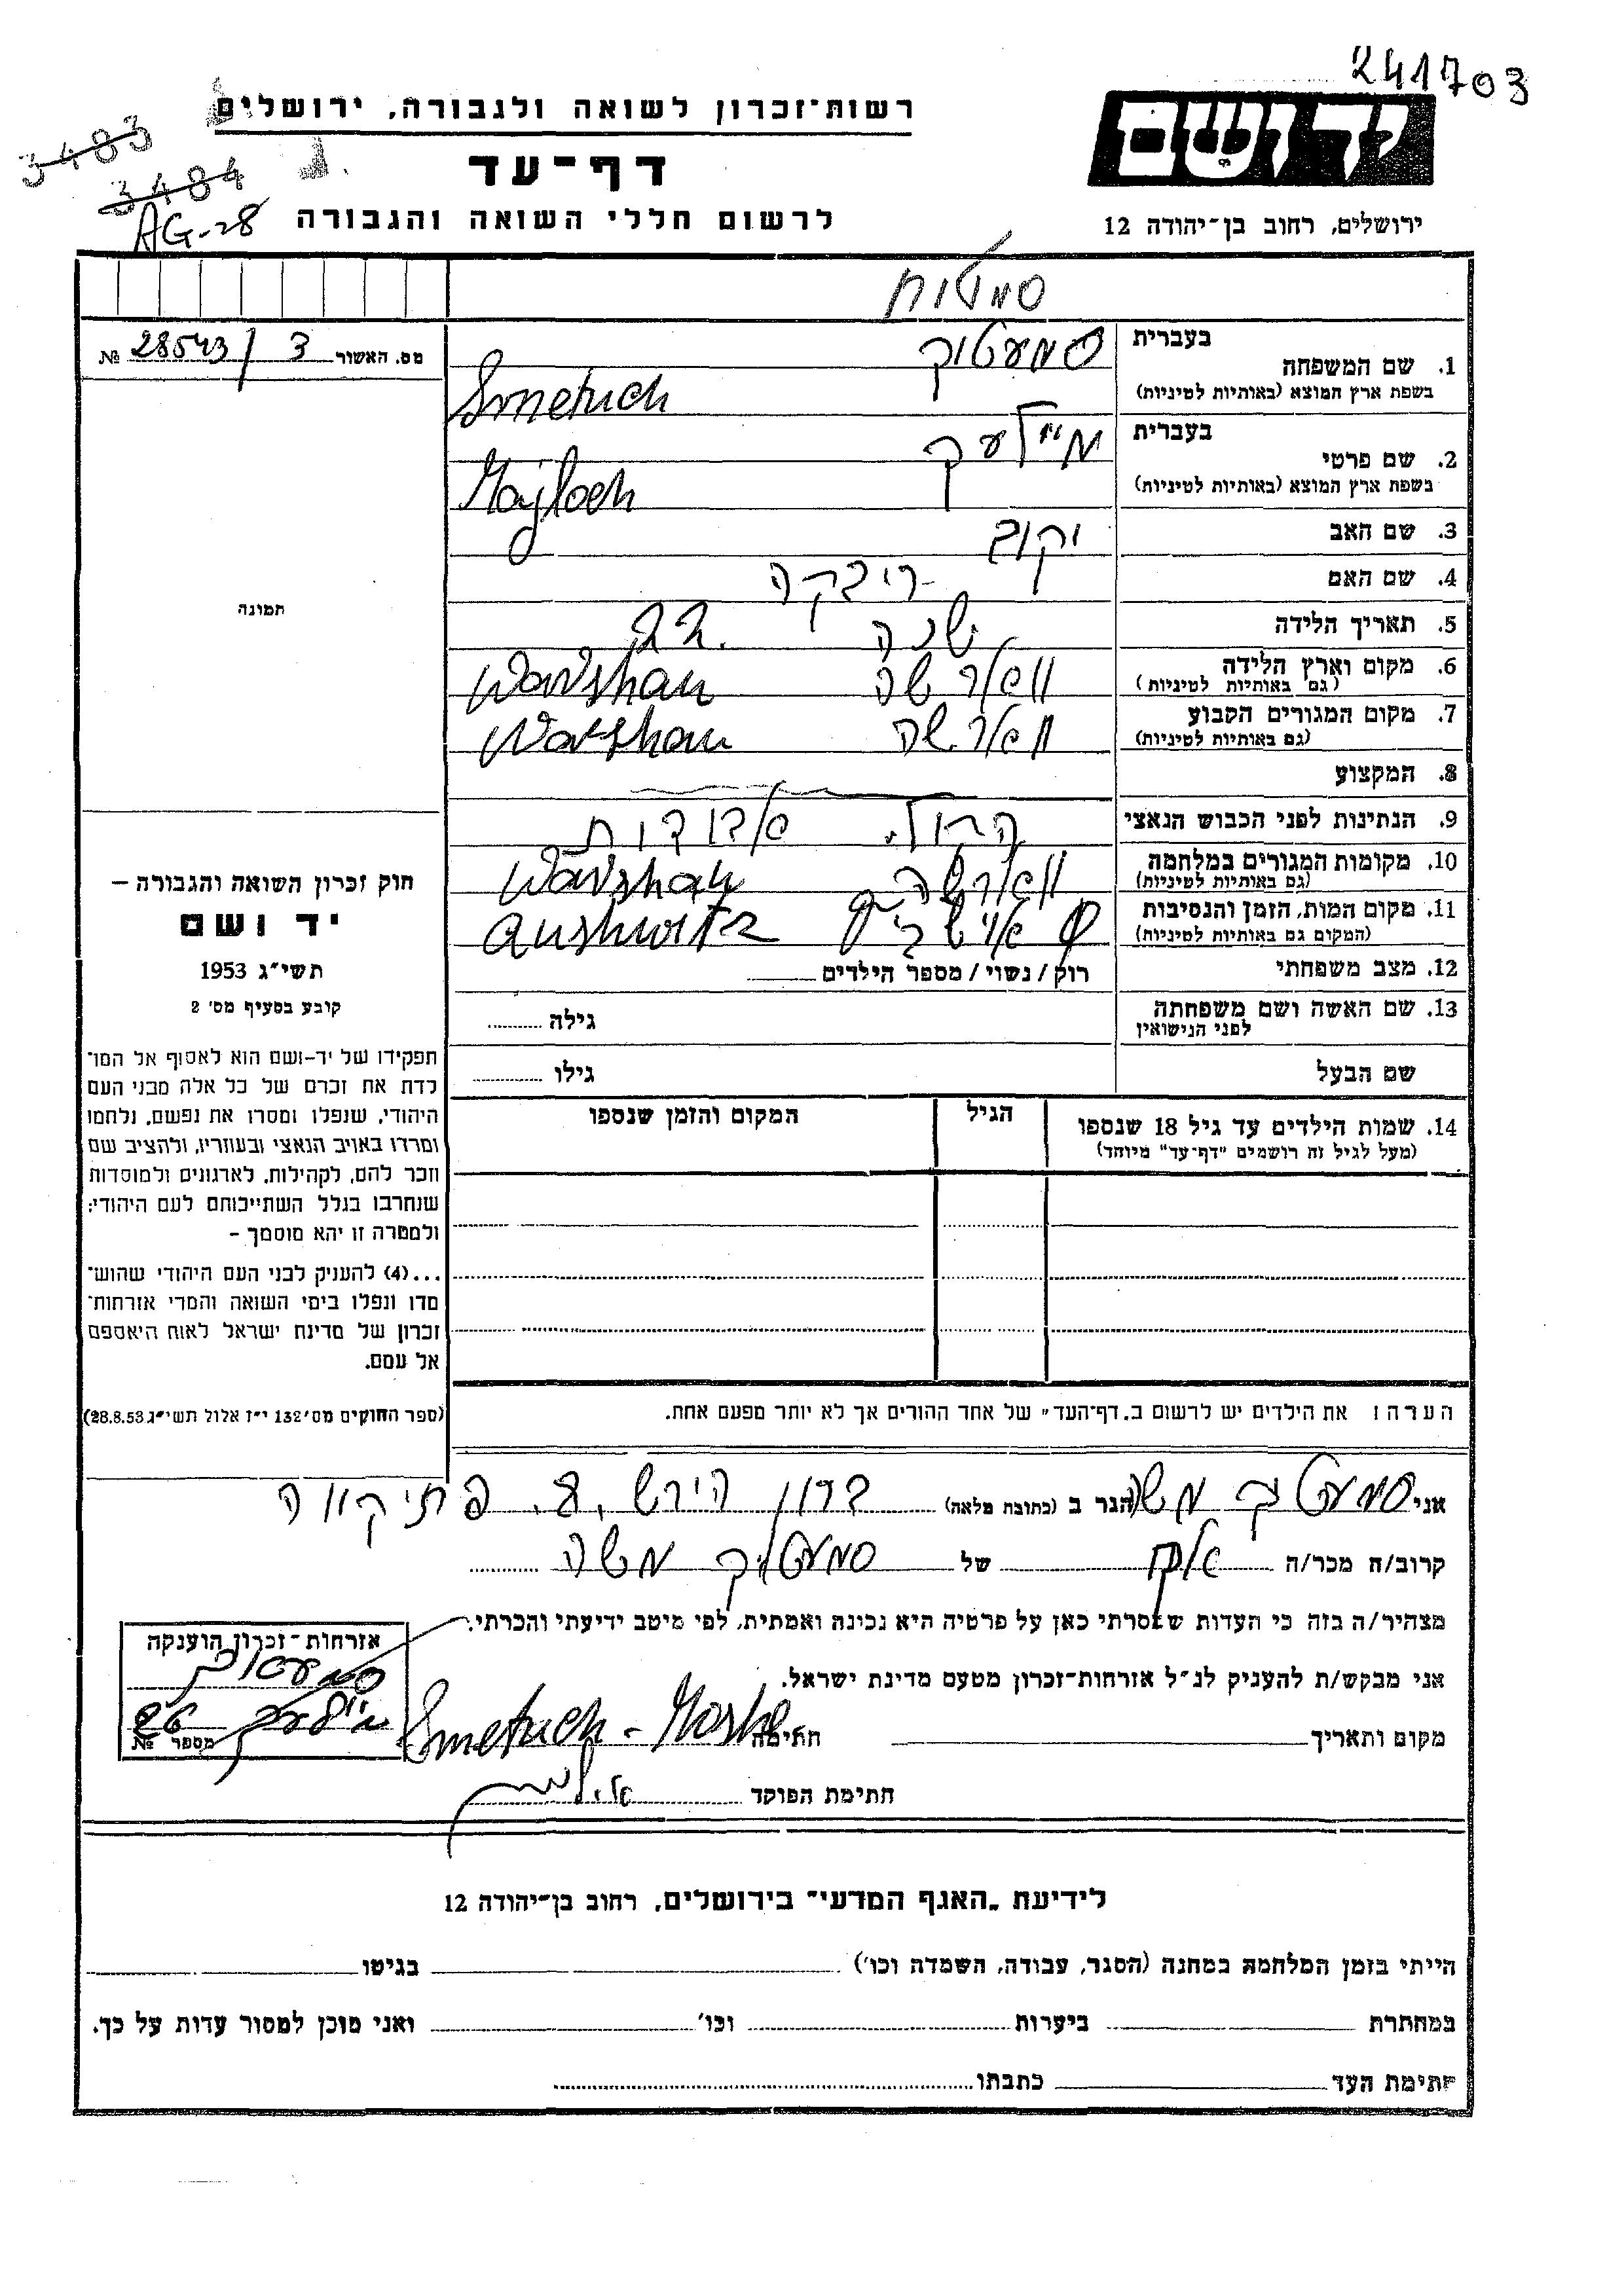 241703
רשות־זכרון לשואה ולגבורה, ירושלים
יד ושם
3483
3484
דף־עד
AG-28
לרשום חללי השואה והגבורה
ירושלים, רחוב בן־יהודה 12
סמטוח
מס. האשור 3 / 28543 №
בעברית
סמעטוך
1. שם המשפחה
בשפת ארץ המוצא (באותיות לטיניות)
Smetuch
בעברית
מיילעך
2. שם פרטי
בשפת ארץ המוצא (באותיות לטיניות)
Majloch
3. שם האב יקוב
4. שם האם ריבקה
תמונה
5. תאריך הלידה שנה 22
6. מקום וארץ הלידה ווארשה Warshau
(גם באותיות לטיניות)
7. מקום המגורים הקבוע ווארשה Warshau
(גם באותיות לטיניות)
8. המקצוע
9. הנתינות לפני הכבוש הנאצי
10. מקומות המגורים במלחמה ווארשה Warshau
(גם באותיות לטיניות)
11. מקום המות, הזמן והנסיבות Aushwitz
(המקום גם באותיות לטיניות)
12. מצב משפחתי רוק / נשוי / מספר הילדים
13. שם האשה ושם משפחתה
לפני הנישואין
גילה
שם הבעל גילו
14. שמות הילדים עד גיל 18 שנספו
(מעל לגיל זה רושמים "דף־עד" מיוחד)
הגיל
המקום והזמן שנספו
חוק זכרון השואה והגבורה –
יד ושם
תשי״ג 1953
קובע בסעיף מס׳ 2
תפקידו של יד-ושם הוא לאסוף אל המו־
לדת את זכרם של כל אלה מבני העם
היהודי, שנפלו ומסרו את נפשם, נלחמו
ומרדו באויב הנאצי ובעוזריו, ולהציב שם
וזכר להם, לקהילות, לארגונים ולמוסדות
שנחרבו בגלל השתייכותם לעם היהודי;
ולמטרה זו יהא מוסמך –
...(4) להעניק לבני העם היהודי שהוש־
מדו ונפלו בימי השואה והמרי אזרחות־
זכרון של מדינת ישראל לאות היאספם
אל עמם.
(ספר החוקים מס׳ 132 י״ז אלול תשי״ג 28.8.53)
הערה: את הילדים יש לרשום ב„דף־העד" של אחד ההורים אך לא יותר מפעם אחת.
אני סמעטוך משה הגר ב (כתובת מלאה) ברון הירש, 8. פתיקווה
קרוב/ה מכר/ה אח של סמעטוך משה
מצהיר/ה בזה כי העדות שמסרתי כאן על פרטיה היא נכונה ואמתית, לפי מיטב ידיעתי והכרתי.
אני מבקש/ת להעניק לנ״ל אזרחות־זכרון מטעם מדינת ישראל.
מקום ותאריך חתימה Smetuch - Moshe
חתימת הפוקד
אזרחות־זכרון הוענקה
סמעטוך
מיילעך
מספר №
לידיעת „האגף המדעי" בירושלים, רחוב בן־יהודה 12
הייתי בזמן המלחמה במחנה (הסגר, עבודה, השמדה וכו׳) בגיטו
במחתרת ביערות וכו׳ ואני מוכן למסור עדות על כך.
חתימת העד כתבתו